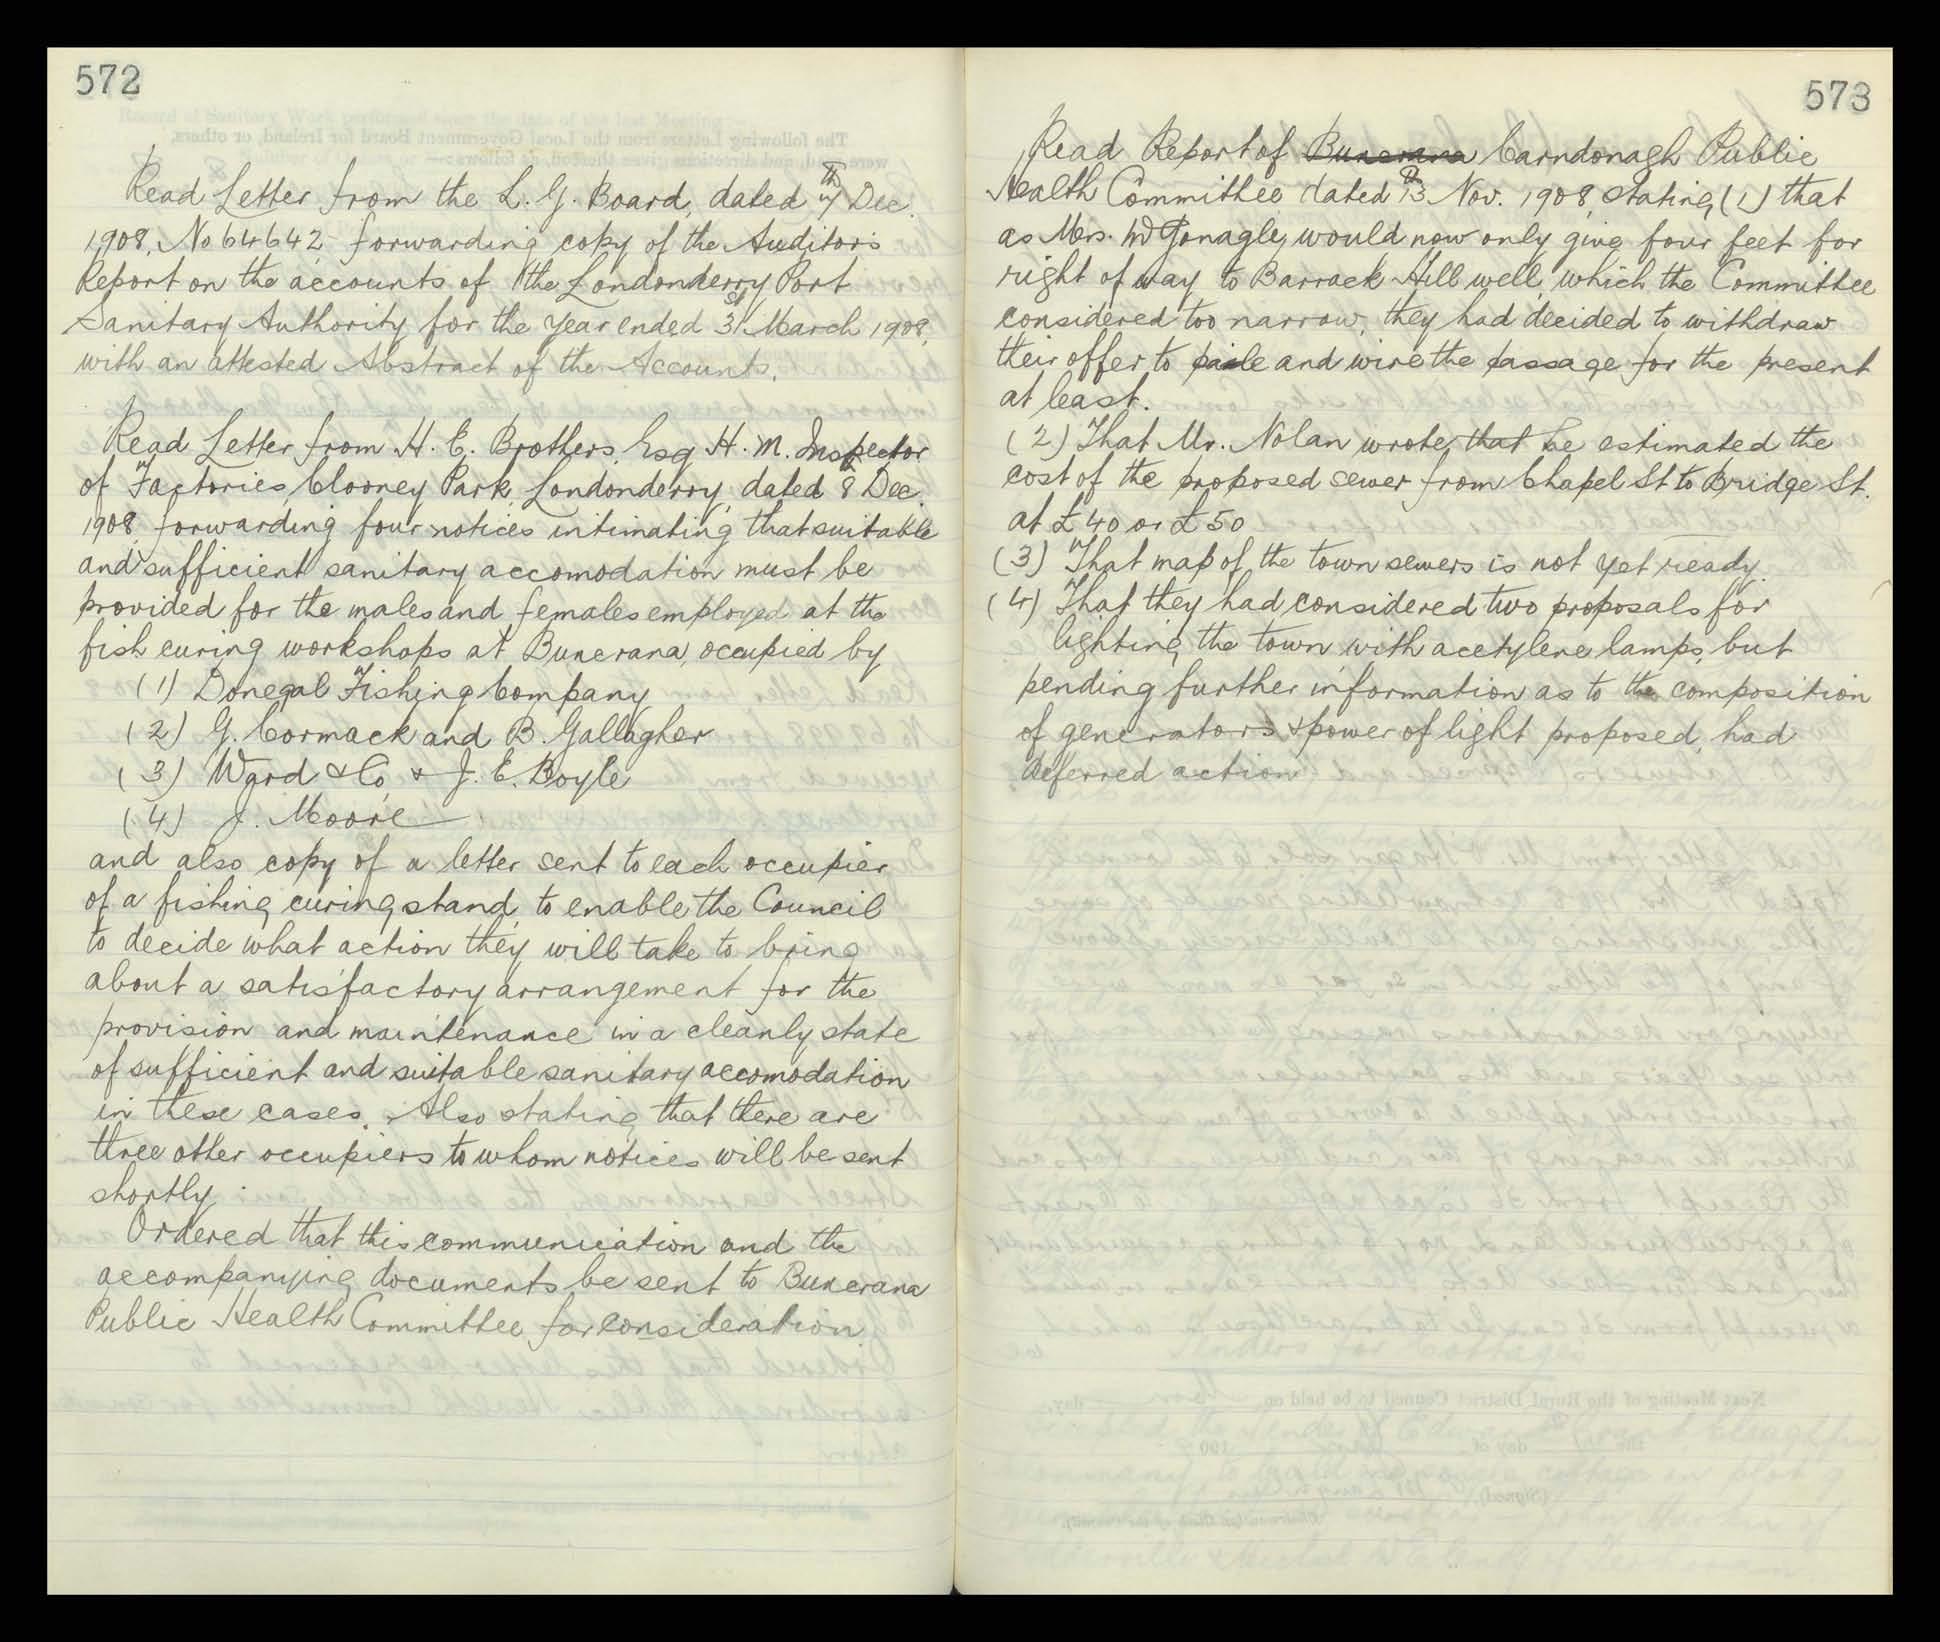 572
Read Letter from the L. G. Board, dated 7th Dec.
1908, No 64642 forwarding copy of the Auditor's
Report on the accounts of the Londonderry Port
Sanitary Authority for the Year ended 31st March 1908,
with an attested Abstract of the Accounts.
Read Letter from H. E. Brothers, Esq H. M. Inspector
of Factories, Clooney Park, Londonderry, dated 8 Dec.
1908, forwarding four notices intimating that suitable
and sufficient sanitary accomodation must be
provided for the males and females employed at the
fish curing workshops at Buncrana, occupied by
(1) Donegal Fishing Company
(2) G. Cormack and B. Gallagher
(3) Ward & Co, & J. E. Boyle
(4) J. Moore
and also copy of a letter sent to each occupier
of a fishing curing stand, to enable the Council
to decide what action they will take to bring
about a satisfactory arrangement for the
provision and maintenance in a cleanly state
of sufficient and suitable sanitary accomodation
in these cases. Also stating that there are
three other occupiers to whom notices will be sent
shortly.
Ordered that this communication and the
accompanying documents be sent to Buncrana
Public Health Committee for consideration
573
Read Report of Buncrana Carndonagh Public
Health Committee dated 13 Nov. 1908, stating (1) that
as Mrs. McGonagle, would now only give four feet for
right of way to Barrack Hill well, which the Committee
considered too narrow, they had decided to withdraw
their offer to paile and wire the passage for the present
at least.
(2) That Mr. Nolan wrote that he estimated the
cost of the proposed sewer from Chapel St to Bridge St.
at £40 or £50
(3) That map of the town sewers is not yet ready.
(4) That they had considered two proposals for
lighting the town with acetylene lamps, but
pending further information as to the composition
of generators & power of light proposed, had
deferred action